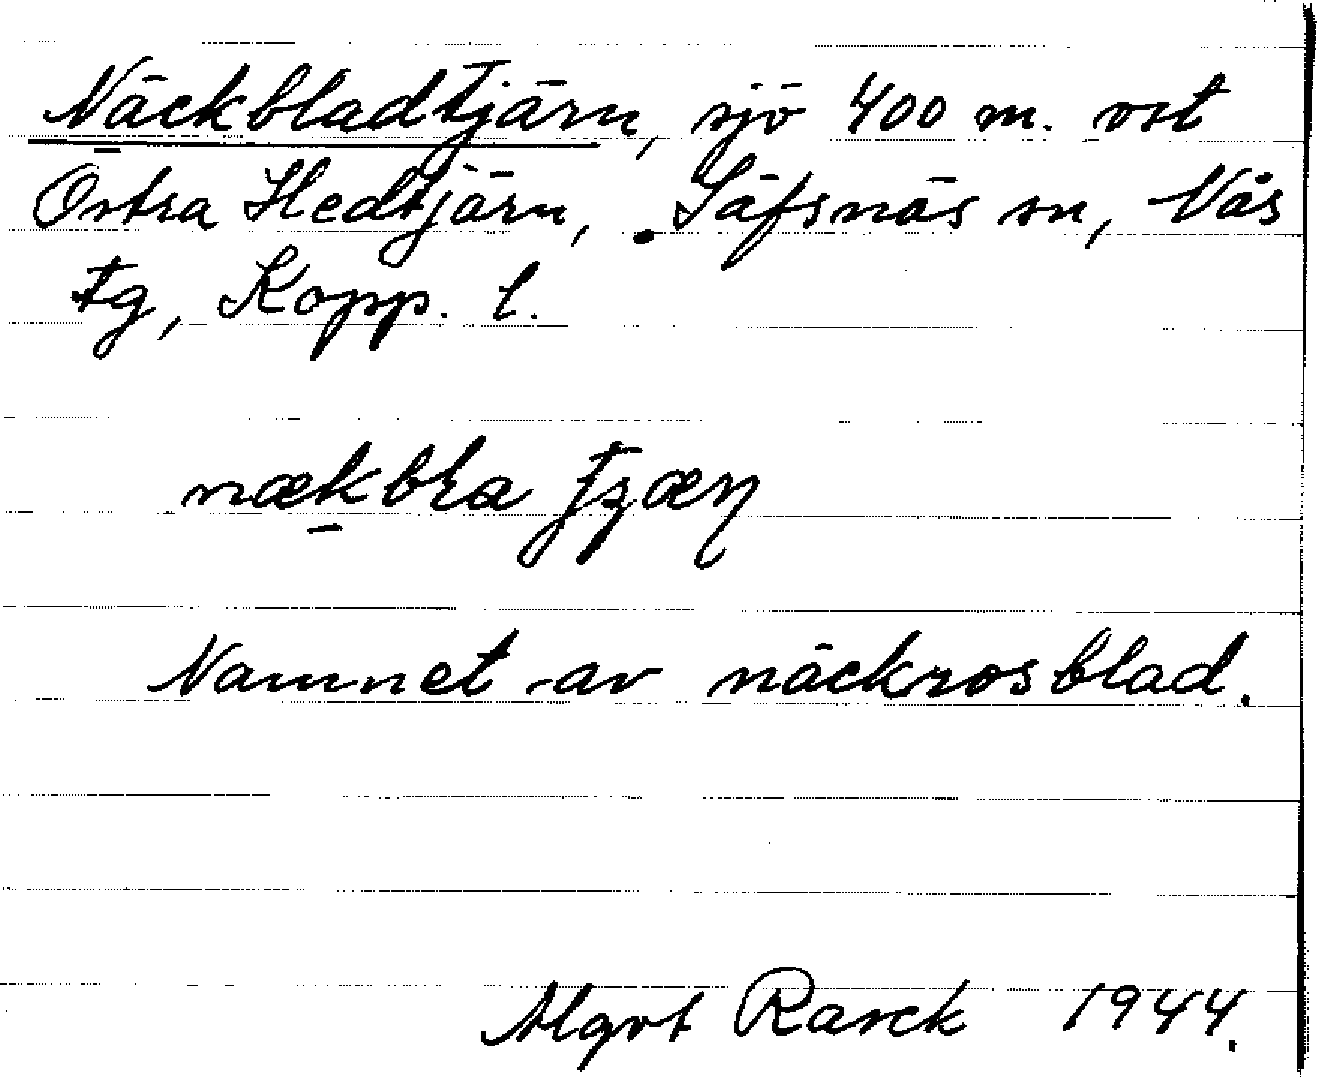 Näckbladtjärn, sjö 400 m. ost
Östra Hedtjärn, Säfsnäs sn, Nås
tg, Kopp. l.
nækbla
Namnet av näckrosblad.
Algot Rasck 1944.